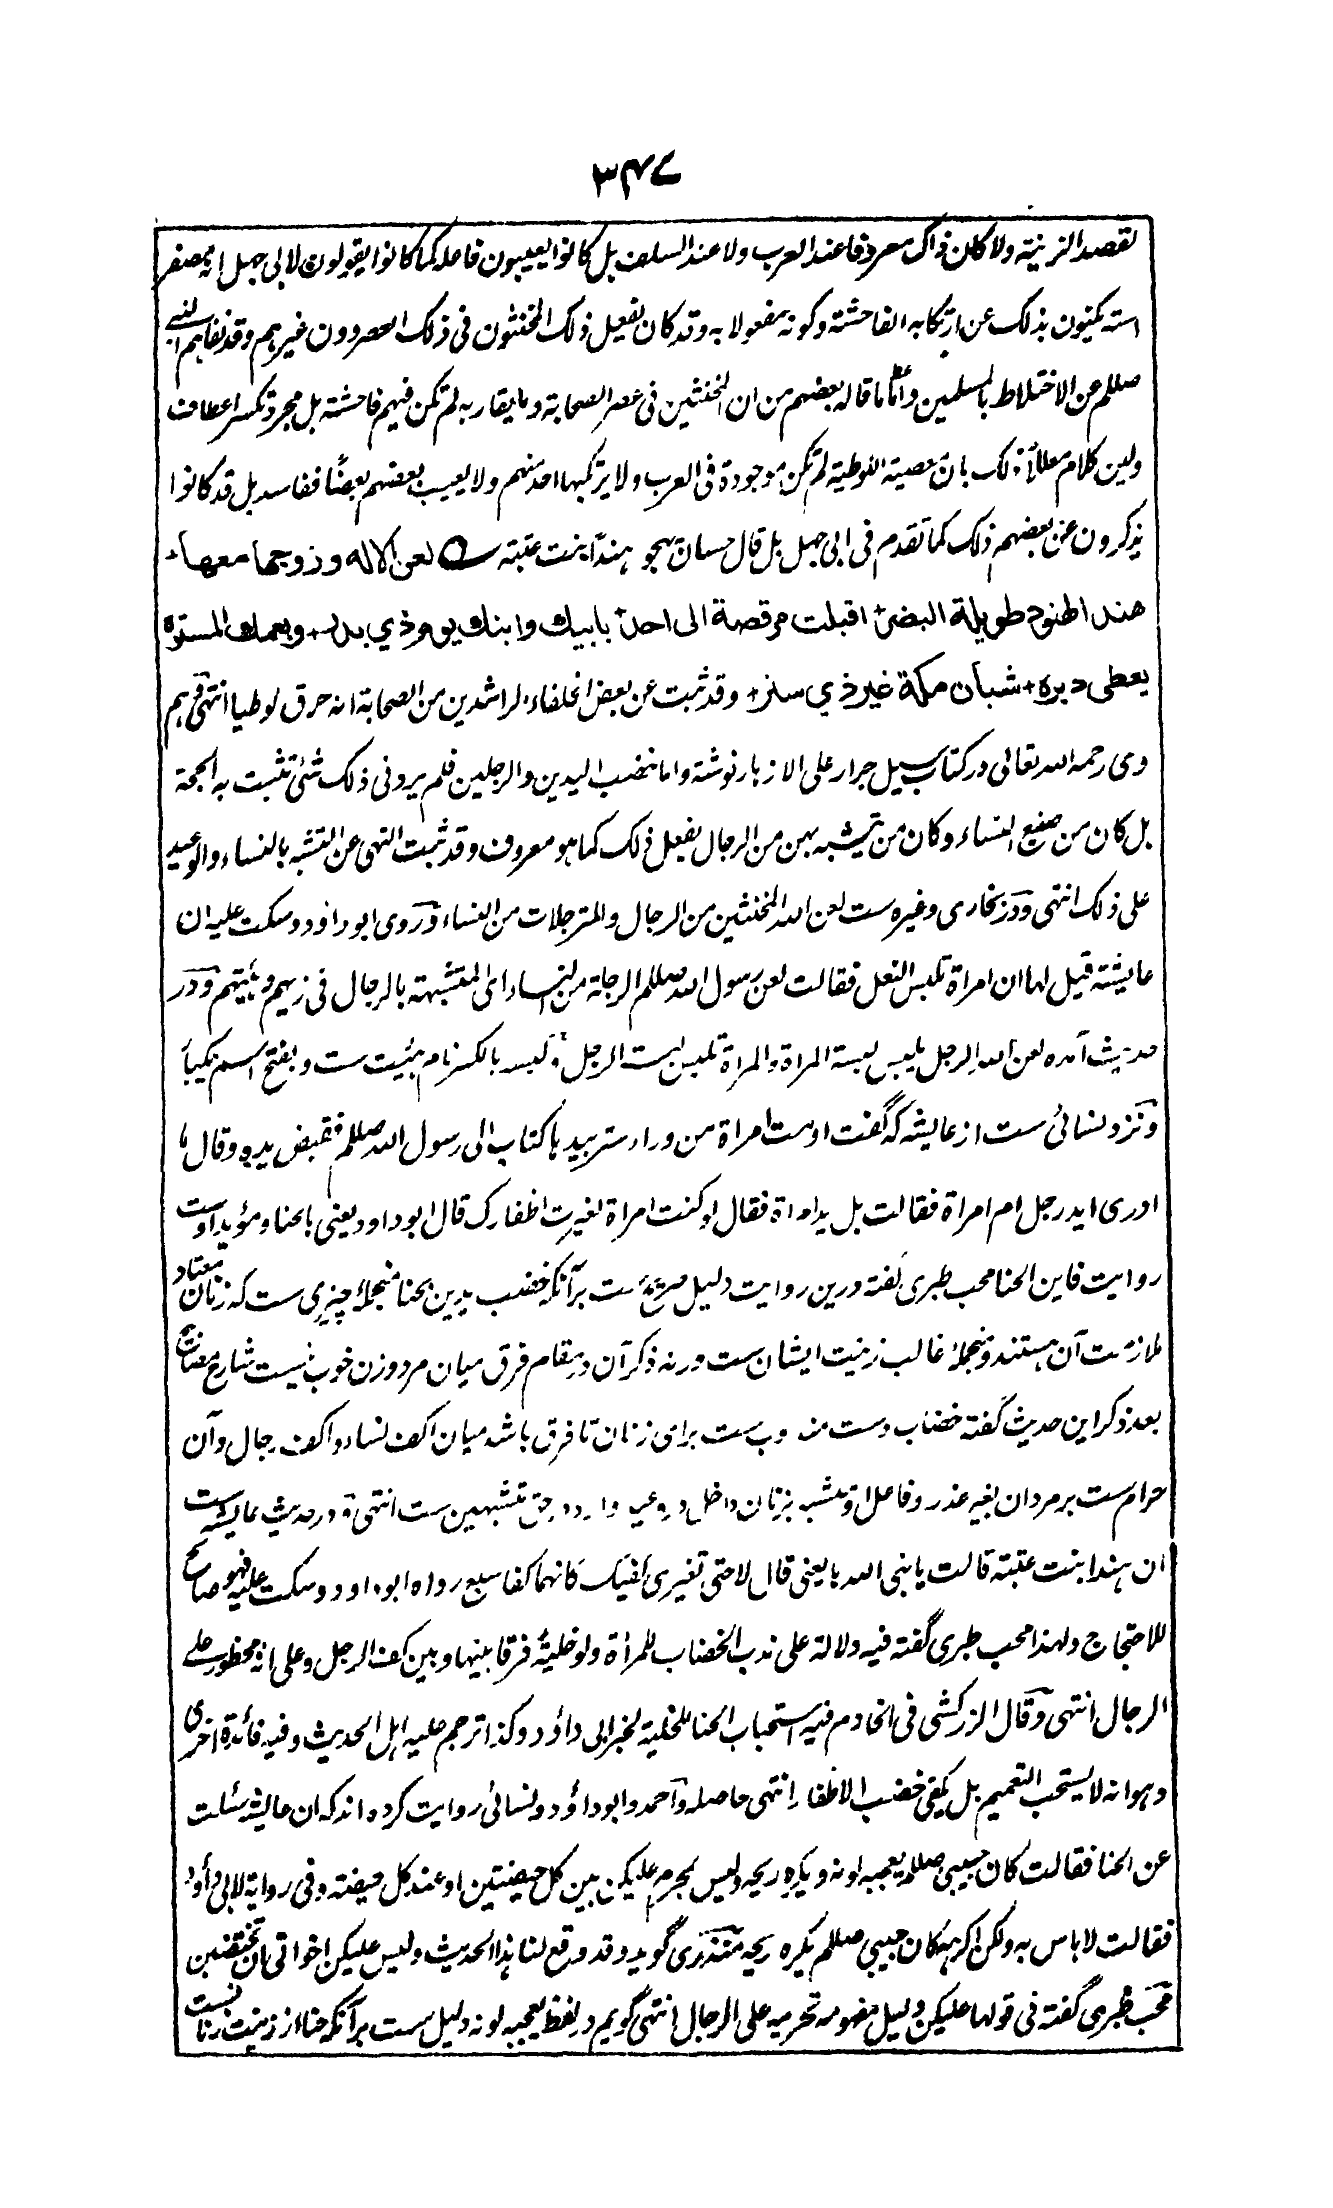 ۳۴۷
لقصد الزينة ولا كان ذاك معروفا عند العرب ولا عند السلف بل كانوا يعيبون فاعله كما كانوا يقولون لابى جهل انه مصفر
استه يكنون بذلك عن ارتكابه الفاحشة وكونه مفعولا به وقد كان يفعل ذلك المخنثون فى ذلك العصر دون غيرهم وقد نفاهم النبى
صللم عن الاختلاط بالمسلمين واما ما قاله بعضهم من ان المخنثين فى عصر الصحابة وما يقاربه لم تكن فيهم فاحشة بل مجرد تكسر اعطاف
ولين كلام معللا ذلك بان معصية اللوطية لم تكن موجودة فى العرب ولا يرتكبها احد منهم ولا يعيب بعضهم بعضًا ففاسد بل قد كانوا
يذكرون عن بعضهم ذلك كما تقدم فى ابى جهل بل قال حسان يهجو هندا بنت عتبة لعن الاله وزوجها معها +
هند الهنود طويلة البضر + اقبلت مرقصة الى احد + بابيك وابنك يوم ذي بدر + وبعمك المستوه
يعطى دبره + شبان مكة غير ذي ستر + وقد ثبت عن بعض الخلفاء الراشدين من الصحابة انه حرق لوطيا انتهى وهم
وى رحمه الله تعالى در كتاب سيل جرار على الازهار نوشته واما خضب اليدين والرجلين فلم يرو فى ذلك شئ تثبت به الحجة
بل كان من صنيع النساء وكان من يتشبه بهن من الرجال يفعل ذلك كما هو معروف وقد ثبت النهى عن التشبه بالنساء والوعيد
على ذلك انتهى ودر بخارى وغيره ست لعن الله المخنثين من الرجال والمترجلات من النساء وروى ابو داود وسكت عليه ان
عايشة قيل لها ان امراة تلبس النعل فقالت لعن رسول الله صللم الرجلة من النساء اى المتشبهة بالرجال فى زيهم وهيئتهم ودر
حديث آمده لعن الله الرجل يلبس لبسة المراة والمراة تلبس لبسة الرجل ولبسه بالكسر نام هيئت ست وبفتح اسم يكبار
ونزد نسائى ست از عايشه كه گفت اومت امراة من وراء ستر بيدها كتاب الى رسول الله صللم فقبض يده وقال ما
ادرى ايد رجل ام امراة فقالت بل يد امراة فقال لو كنت امراة لغيرت اظفارك قال ابو داود يعنى بالحنا ومؤيد اوست
روايت فاين الحنا محب طبرى گفته درين روايت دليل صريح ست برآنكه خضب يدين بحنا منجملهٔ چيزى ست كه زنان معتاد
ملازمت آن هستند ومنجملهٔ غالب زينت ايشان ست ورنه ذكر آن در مقام فرق ميان مرد وزن خوب نيست شارع مصابيح
بعد ذكر اين حديث گفته خضاب دست مندوب ست براى زنان تا فرق باشد ميان اكف نساء واكف رجال وآن
حرام ست بر مردان بغير عذر وفاعل او متشبه بزنان داخل در وعيد وارد در حق متشبهين ست انتهى ودر حديث عايشه ست
ان هندا بنت عتبة قالت يا نبى الله بايعنى قال لا حتى تغيرى كفيك كانهما كفا سبع رواه ابو داود وسكت عليه فهو صالح
للاحتجاج ولهذا محب طبرى گفته فيه دلالة على ندب الخضاب للمرأة ولو خلية فرقا بينها وبين كف الرجل وعلى انه محظور على
الرجال انتهى وقال الزركشى فى الخادم فيه استحباب الحنا للخلية لخبر ابى داؤد وكذا ترجم عليه اهل الحديث وفيه فائدة اخرى
وهو انه لا يستحب التعميم بل يكفى خضب الاظفار انتهى حاصله وآحمد وابو داؤد ونسائى روايت كرده اند كه ان عايشه سئلت
عن الحنا فقالت كان حبيبى صللم يعجبه لونه ويكره ريحه وليس بمحرم عليكن بين كل حيضتين او عند كل حيضة وفى رواية لابى داؤد
فقالت لا باس به ولكن اكرهه كان حبيبى صللم يكره ريحه منذرى گويد وقد وقع لنا هذا الحديث وليس عليكن اخواتى ان تختضبن
محب طبرى گفته فى قولها عليكن دليل مفهومه تحريمه على الرجال انتهى گويم در لفظ يعجبه لونه دليل ست برآنكه حنا از زينت زنانست